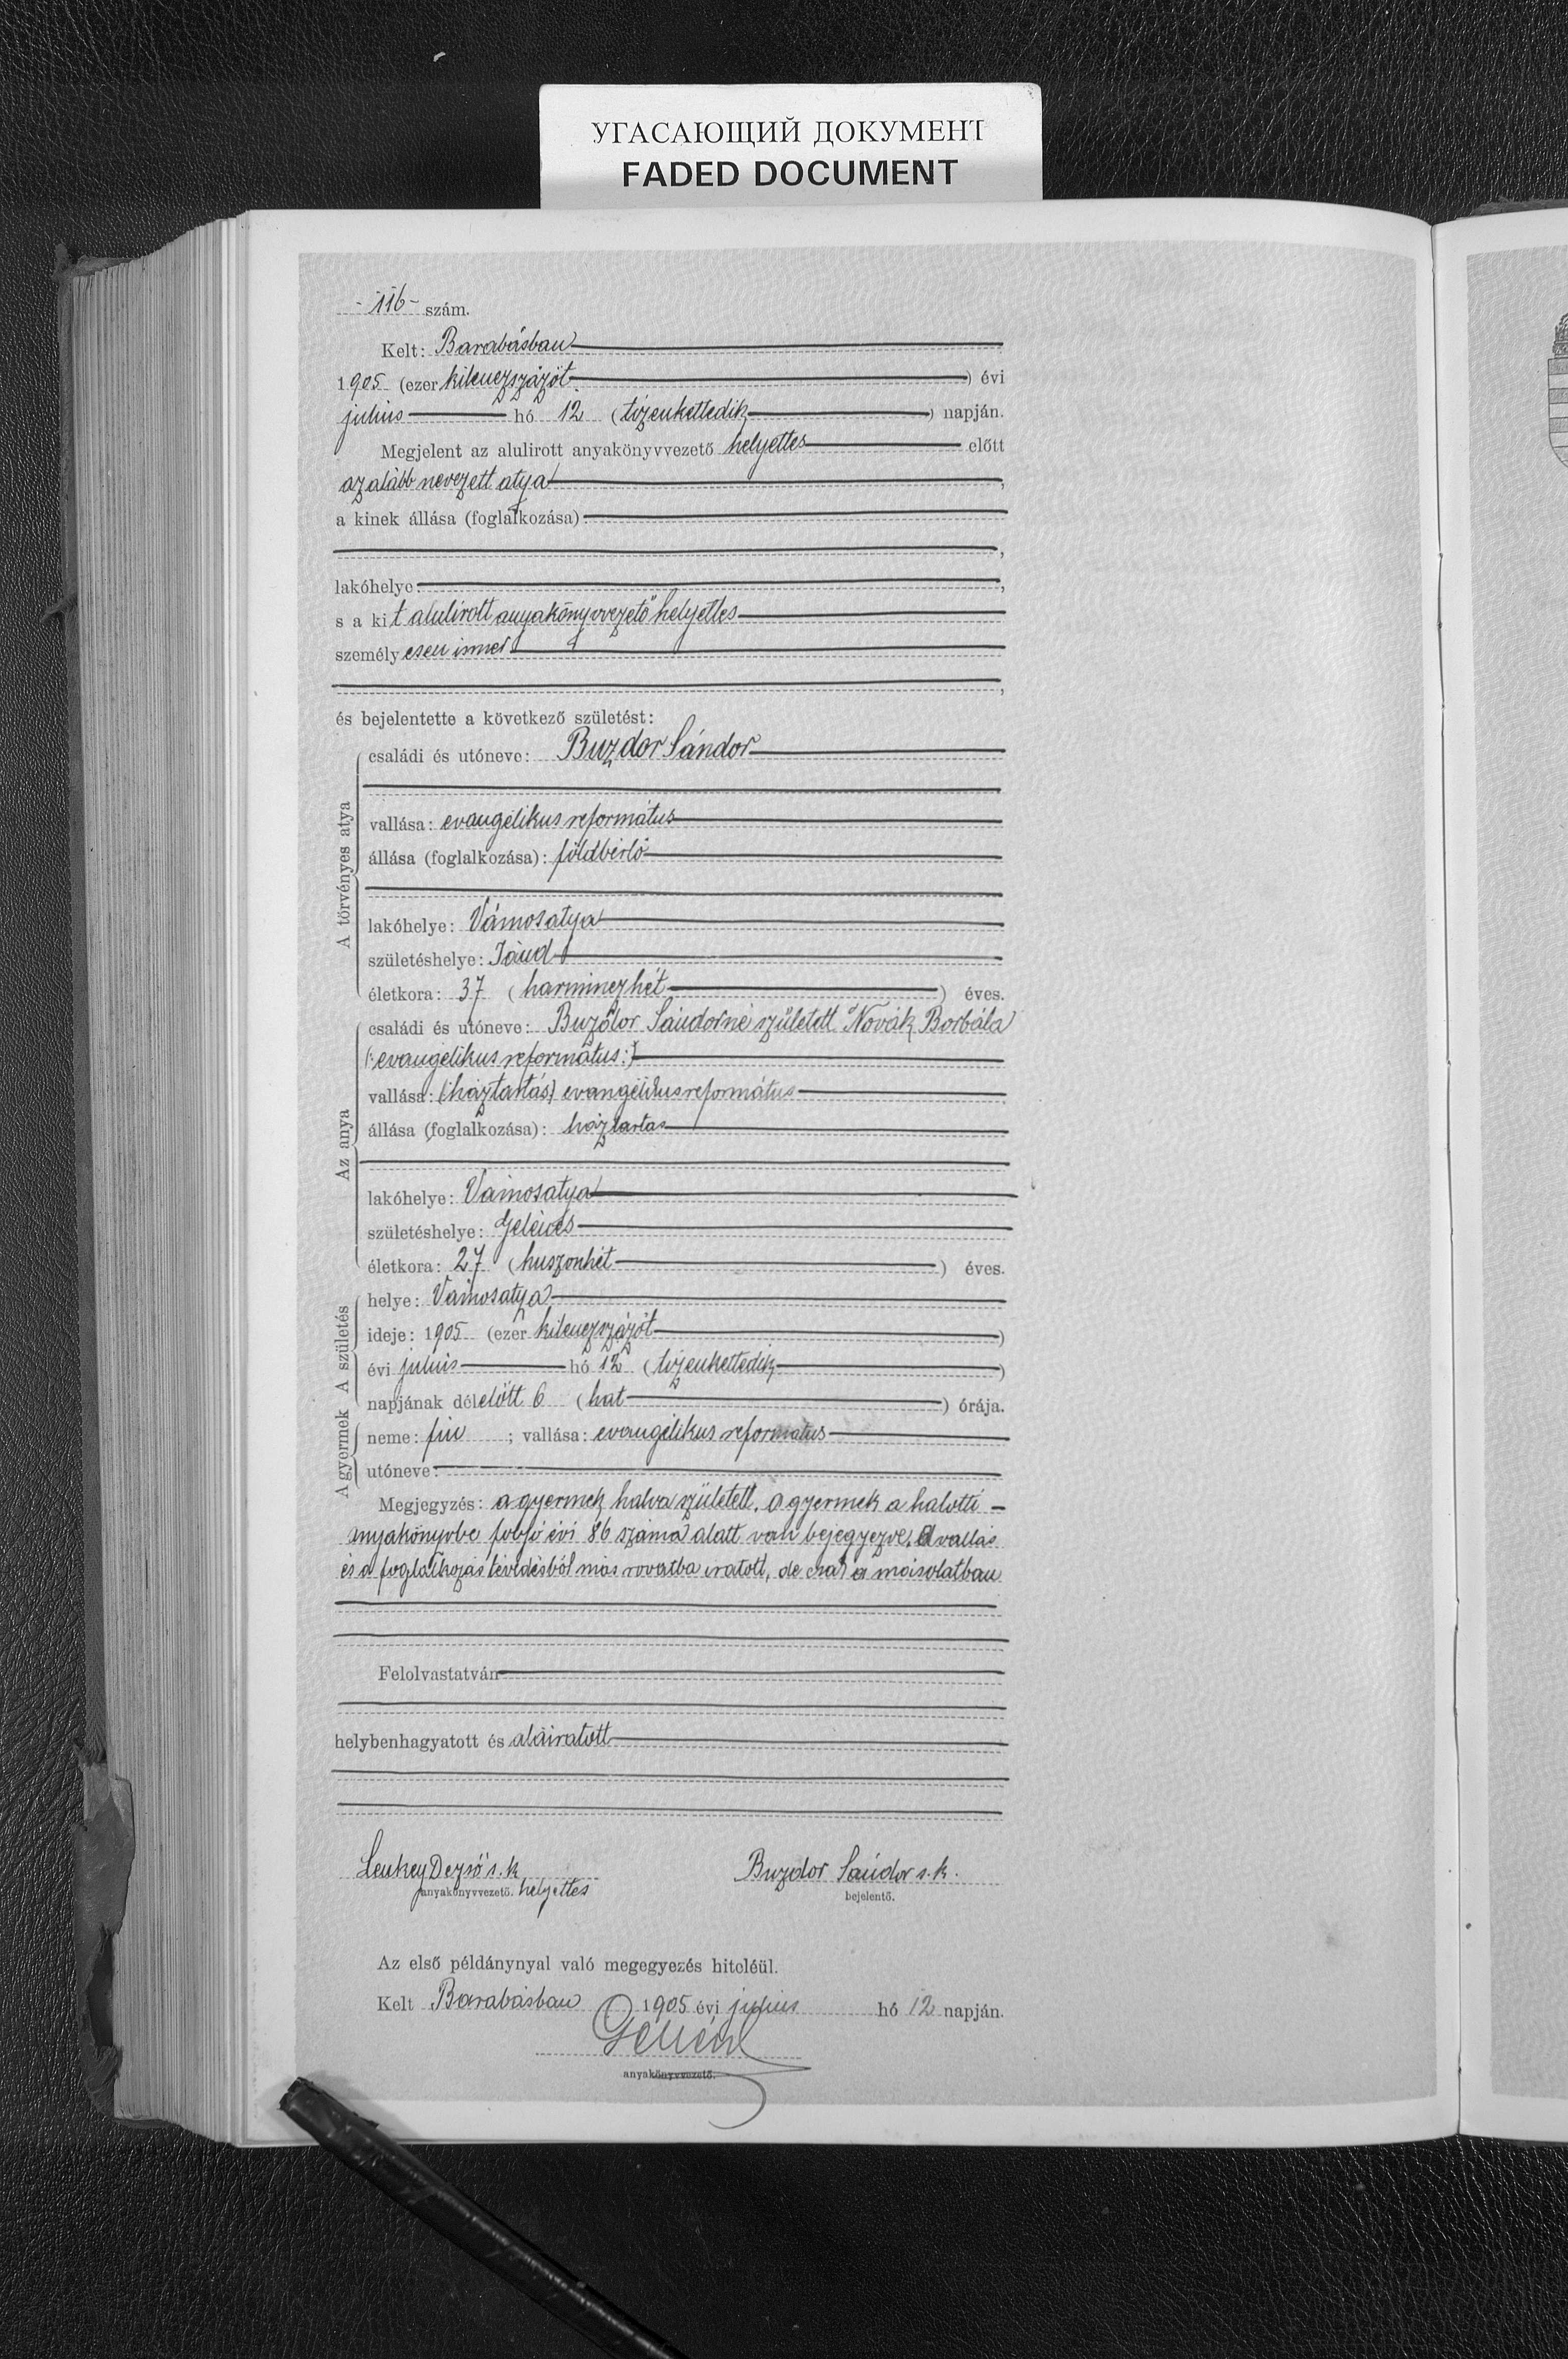 УГАСАЮЩИЙ ДОКУМЕНТ
FADED DOCUMENT
-116- szám.
Kelt: Barabásban
1905 (ezer kilenczszázöt) évi
julius hó 12 (tizenkettedik) napján.
Megjelent az alulirott anyakönyvvezető helyettes előtt
az alább nevezett atya,
a kinek állása (foglalkozása):
,
lakóhelye:,
s a kit alulirott anyakönyvvezető helyettes
személyesen ismer
,
és bejelentette a következő születést:
A törvényes atya
családi és utóneve: Buzdor Sándor
vallása: evangélikus református
állása (foglalkozása): földbérlő
lakóhelye: Vámosatya
születéshelye: Jánd
életkora: 37 (harminczhét) éves.
Az anya
családi és utóneve: Buzdor Sándorné született Novák Borbála
(:evangélikus református:)
vallása: (háztartás) evangélikus református
állása (foglalkozása): háztartás
lakóhelye: Vámosatya
születéshelye: Gelénes
életkora: 27 (huszonhét) éves.
A születés
helye: Vámosatya
ideje: 1905 (ezer kilenczszázöt)
évi julius hó 12 (tizenkettedik)
napjának délelőtt 6 (hat) órája.
A gyermek
neme: fiu; vallása: evangélikus református
utóneve:
Megjegyzés: a gyermek halva született. a gyermek a halotti
anyakönyvbe folyó évi 86 száma alatt van bejegyezve. A vallás
és a foglalkozás tévedésből más rovatba iratott, de csak a másolatban
Felolvastatván
helybenhagyatott és aláiratott
Dezső s.k. Buzdor Sándor s.k.
anyakönyvvezető. helyettes bejelentő.
Az első példánynyal való megegyezés hiteléül.
Kelt Barabásban 1905 évi julius hó 12 napján.
anyakönyvvezető.